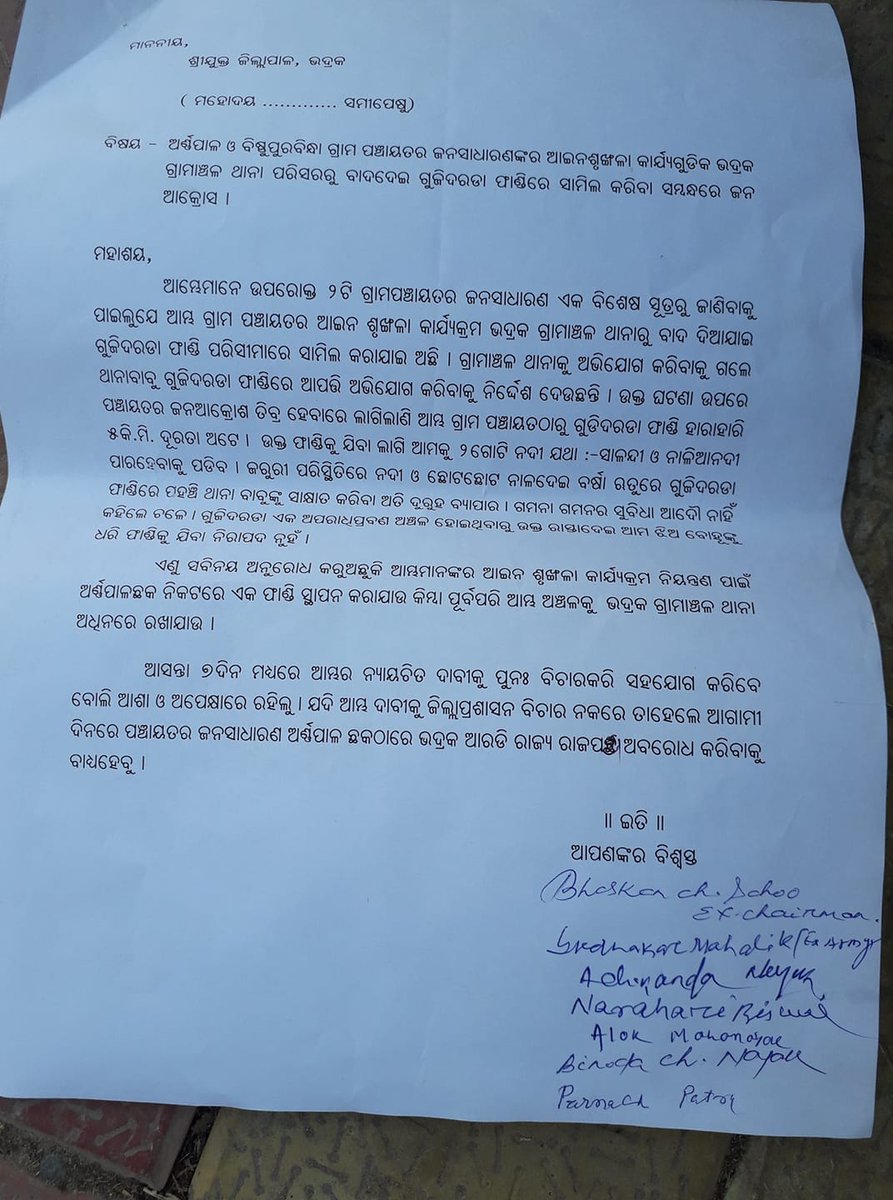 ମାନନୀୟ,
ଶ୍ରୀଯୁକ୍ତ ଜିଲ୍ଲାପାଳ, ଭଦ୍ରକ
( ମହୋଦୟ ............. ସମୀପେଷୁ)
ବିଷୟ - ଅର୍ଣ୍ଣପାଳ ଓ ବିଷ୍ଣୁପୁରବିନ୍ଧା ଗ୍ରାମ ପଞ୍ଚାୟତର ଜନସାଧାରଣଙ୍କର ଆଇନଶୃଙ୍ଖଳା କାର୍ଯ୍ୟଗୁଡିକ ଭଦ୍ରକ
ଗ୍ରାମାଞ୍ଚଳ ଥାନା ପରିସରରୁ ବାଦଦେଇ ଗୁଜିଦରଡା ଫାଣ୍ଡିରେ ସାମିଲ କରିବା ସମ୍ବନ୍ଧରେ ଜନ
ଆକ୍ରୋସ ।
ମହାଶୟ,
ଆମ୍ଭେମାନେ ଉପରୋକ୍ତ ୨ଟି ଗ୍ରାମପଞ୍ଚାୟତର ଜନସାଧାରଣ ଏକ ବିଶେଷ ସୂତ୍ରରୁ ଜାଣିବାକୁ
ପାଇଲୁଯେ ଆମ୍ଭ ଗ୍ରାମ ପଞ୍ଚାୟତର ଆଇନ ଶୃଙ୍ଖଳା କାର୍ଯ୍ୟକ୍ରମ ଭଦ୍ରକ ଗ୍ରାମାଞ୍ଚଳ ଥାନାରୁ ବାଦ ଦିଆଯାଇ
ଗୁଜିଦରଡା ଫାଣ୍ଡି ପରିସୀମାରେ ସାମିଲ କରାଯାଇ ଅଛି । ଗ୍ରାମାଞ୍ଚଳ ଥାନାକୁ ଅଭିଯୋଗ କରିବାକୁ ଗଲେ
ଥାନାବାବୁ ଗୁଜିଦରଡା ଫାଣ୍ଡିରେ ଆପତ୍ତି ଅଭିଯୋଗ କରିବାକୁ ନିର୍ଦ୍ଦେଶ ଦେଉଛନ୍ତି । ଉକ୍ତ ଘଟଣା ଉପରେ
ପଞ୍ଚାୟତର ଜନଆକ୍ରୋଶ ତିବ୍ର ହେବାରେ ଲାଗିଲାଣି ଆମ୍ଭ ଗ୍ରାମ ପଞ୍ଚାୟତଠାରୁ ଗୁଡିଦରଡା ଫାଣ୍ଡି ହାରାହାରି
୫କି.ମି. ଦୂରତା ଅଟେ । ଉକ୍ତ ଫାଣ୍ଡିକୁ ଯିବା ଲାଗି ଆମକୁ ୨ଗୋଟି ନଦୀ ଯଥା :-ସାଳନ୍ଦୀ ଓ ନାଳିଆନଦୀ
ପାରହେବାକୁ ପଡିବ । ଜରୁରୀ ପରିସ୍ଥିତିରେ ନଦୀ ଓ ଛୋଟଛୋଟ ନାଳଦେଇ ବର୍ଷା ଋତୁରେ ଗୁଜିଦରଡା
ଫାଣ୍ଡିରେ ପହଞ୍ଚି ଥାନା ବାବୁଙ୍କୁ ସାକ୍ଷାତ କରିବା ଅତି ଦୂରୁହ ବ୍ୟାପାର । ଗମନା ଗମନର ସୁବିଧା ଆଦୌ ନାହିଁ
କହିଲେ ଚଳେ । ଗୁଜିଦରଡା ଏକ ଅପରାଧିପ୍ରବଣ ଅଞ୍ଚଳ ହୋଇଥିବାରୁ ଉକ୍ତ ରାସ୍ତାଦେଇ ଆମ ଝିଅ ବୋହୂଙ୍କୁ
ଧରି ଫାଣ୍ଡିକୁ ଯିବା ନିରାପଦ ନୁହଁ ।
ଏଣୁ ସବିନୟ ଅନୁରୋଧ କରୁଅଛୁକି ଆମ୍ଭମାନଙ୍କର ଆଇନ ଶୃଙ୍ଖଳା କାର୍ଯ୍ୟକ୍ରମ ନିୟନ୍ତ୍ରଣ ପାଇଁ
ଅର୍ଣ୍ଣପାଳଛକ ନିକଟରେ ଏକ ଫାଣ୍ଡି ସ୍ଥାପନ କରାଯାଉ କିମ୍ବା ପୂର୍ବପରି ଆମ୍ଭ ଅଞ୍ଚଳକୁ ଭଦ୍ରକ ଗ୍ରାମାଞ୍ଚଳ ଥାନା
ଅଧିନରେ ରଖାଯାଉ ।
ଆସନ୍ତା ୭ଦିନ ମଧ୍ୟରେ ଆମ୍ଭର ନ୍ୟାୟଚିତ ଦାବୀକୁ ପୁନଃ ବିଚାରକରି ସହଯୋଗ କରିବେ
ବୋଲି ଆଶା ଓ ଅପେକ୍ଷାରେ ରହିଲୁ । ଯଦି ଆମ୍ଭ ଦାବୀକୁ ଜିଲ୍ଲାପ୍ରଶାସନ ବିଚାର ନକରେ ତାହେଲେ ଆଗାମୀ
ଦିନରେ ପଞ୍ଚାୟତର ଜନସାଧାରଣ ଅର୍ଣ୍ଣପାଳ ଛକଠାରେ ଭଦ୍ରକ ଆରଡି ରାଜ୍ୟ ଅବରୋଧ କରିବାକୁ
ବାଧ୍ୟହେବୁ ।
॥ ଇତି ॥
ଆପଣଙ୍କର ବିଶ୍ୱସ୍ତ
Bhaskar ch. Sahoo
Ex-chairman.
Mahalik (Ex Army)
Narahari Biswal
Alok
Binoda ch. Nayak